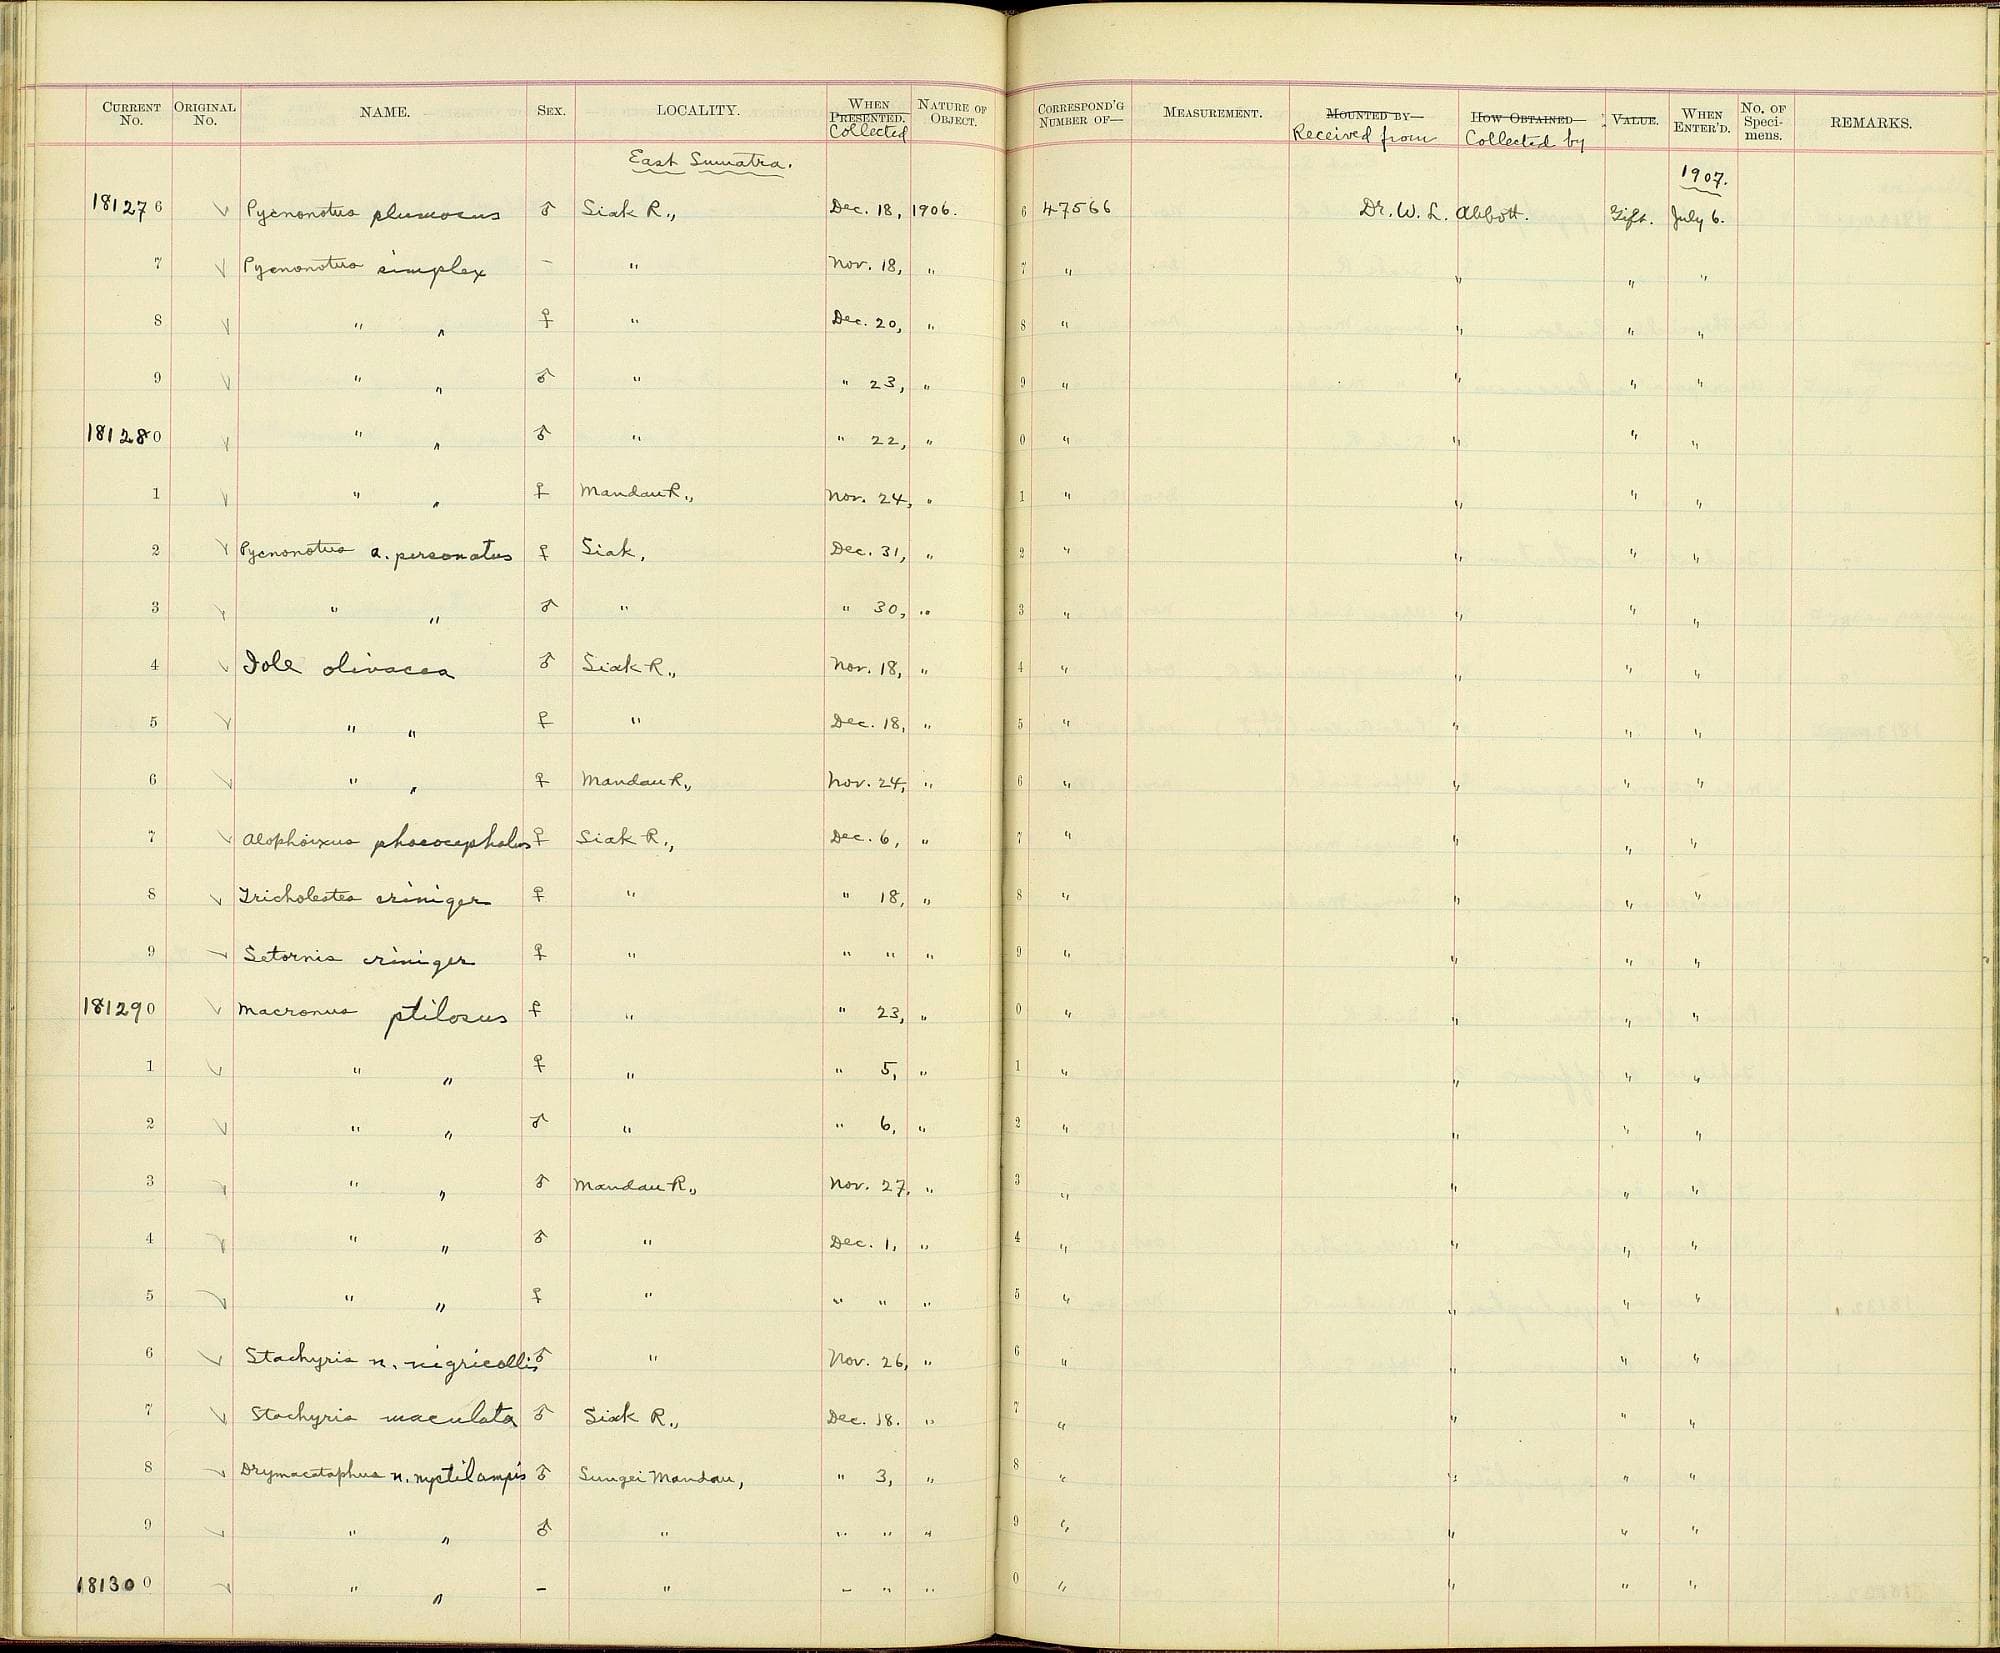 CURRENT No. ORIGINAL No. NAME. SEX. LOCALITY. WHEN PRESENTED. Collected NATURE OF OBJECT. CORRESPOND'G NUMBER OF— MEASUREMENT. MOUNTED BY— Received from HOW OBTAINED— Collected by VALUE. WHEN ENTER'D. No. OF Specimens. REMARKS.
East Sumatra. 1907.
181276 ✓ Pycnonotus plumosus ♂ Siak R., Dec. 18, 1906. 6 47566 Dr. W. L. Abbott. Gift. July 6.
7 ✓ Pycnonotus simplex – " Nov. 18, " 7 " " " "
8 ✓ " " ♀ " Dec. 20, " 8 " " " "
9 ✓ " " ♂ " " 23, " 9 " " " "
181280 ✓ " " ♂ " " 22, " 0 " " " "
1 ✓ " " ♀ Mandau R., Nov. 24, " 1 " " " "
2 ✓ Pycnonotus a. personatus ♀ Siak, Dec. 31, " 2 " " " "
3 ✓ " " ♂ " " 30, " 3 " " " "
4 ✓ Iole olivacea ♂ Siak R., Nov. 18, " 4 " " " "
5 ✓ " " ♀ " Dec. 18, " 5 " " " "
6 ✓ " " ♀ Mandau R., Nov. 24, " 6 " " " "
7 ✓ Alophoixus phaeocephalus ♀ Siak R., Dec. 6, " 7 " " " "
8 ✓ Tricholestes criniger ♀ " " 18, " 8 " " " "
9 ✓ Setornis criniger ♀ " " " " 9 " " " "
181290 ✓ Macronus ptilosus ♀ " " 23, " 0 " " " "
1 ✓ " " ♀ " " 5, " 1 " " " "
2 ✓ " " ♂ " " 6, " 2 " " " "
3 ✓ " " ♂ Mandau R., Nov. 27, " 3 " " " "
4 ✓ " " ♂ " Dec. 1, " 4 " " " "
5 ✓ " " ♀ " " " " 5 " " " "
6 ✓ Stachyris n. nigricollis ♂ " Nov. 26, " 6 " " " "
7 ✓ Stachyris maculata ♂ Siak R., Dec. 18. " 7 " " " "
8 ✓ Drymacataphus n. nyctilampis ♂ Sungei Mandau, " 3, " 8 " " " "
9 ✓ " " ♂ " " " " 9 " " " "
181300 ✓ " " – " " " " 0 " " " "